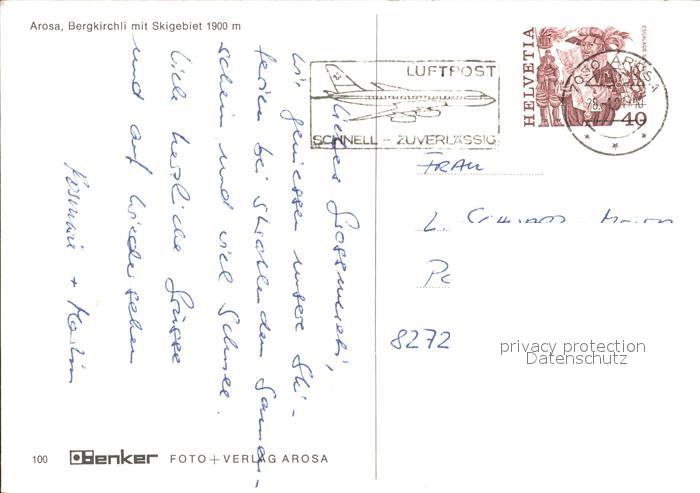 Arosa, Bergkirchli mit Skigebiet 1900 m
Liebes Grossmueti,
wir geniessen unsere Ski-
ferien bei strahlendem Sonnen-
schein und viel Schnee.
Viele herzliche Grüsse
und auf Wiedersehen
Rosmarie + Martin
100 Benker FOTO + VERLAG AROSA
LUFTPOST
SCHNELL – ZUVERLÄSSIG
HELVETIA
ESCALADE
40
7050 AROSA
FRAU
L.
8272
privacy protection
Datenschutz